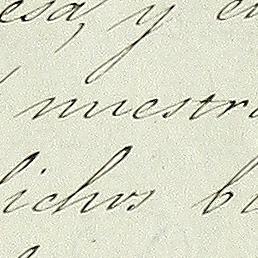 esa, y en
nuestra
dichos bi